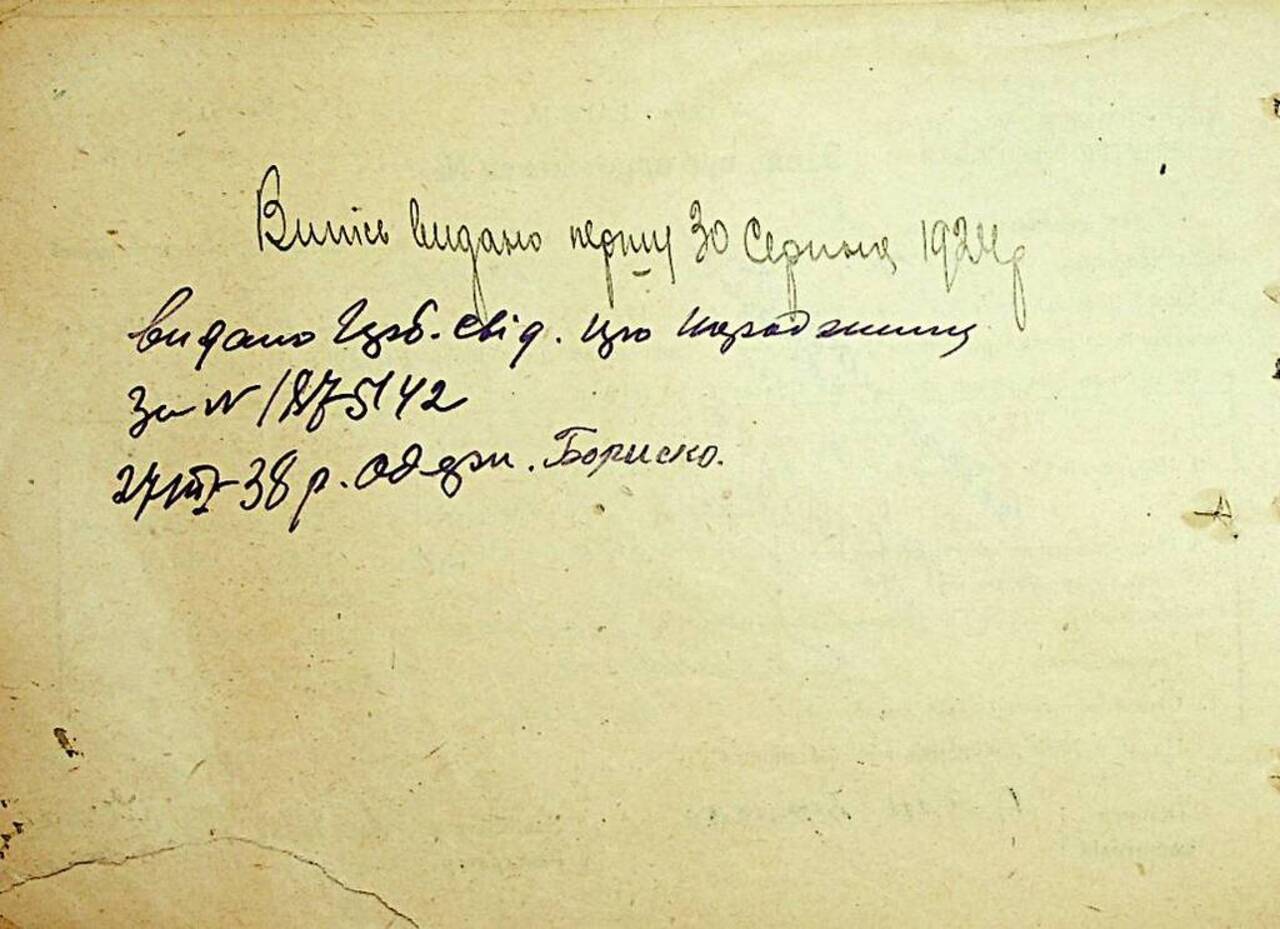 Витис видано першу 30 Серпня 1924р
видано дуб. свід. про народження
За № 1875142
27/III-38 р. Бориско.